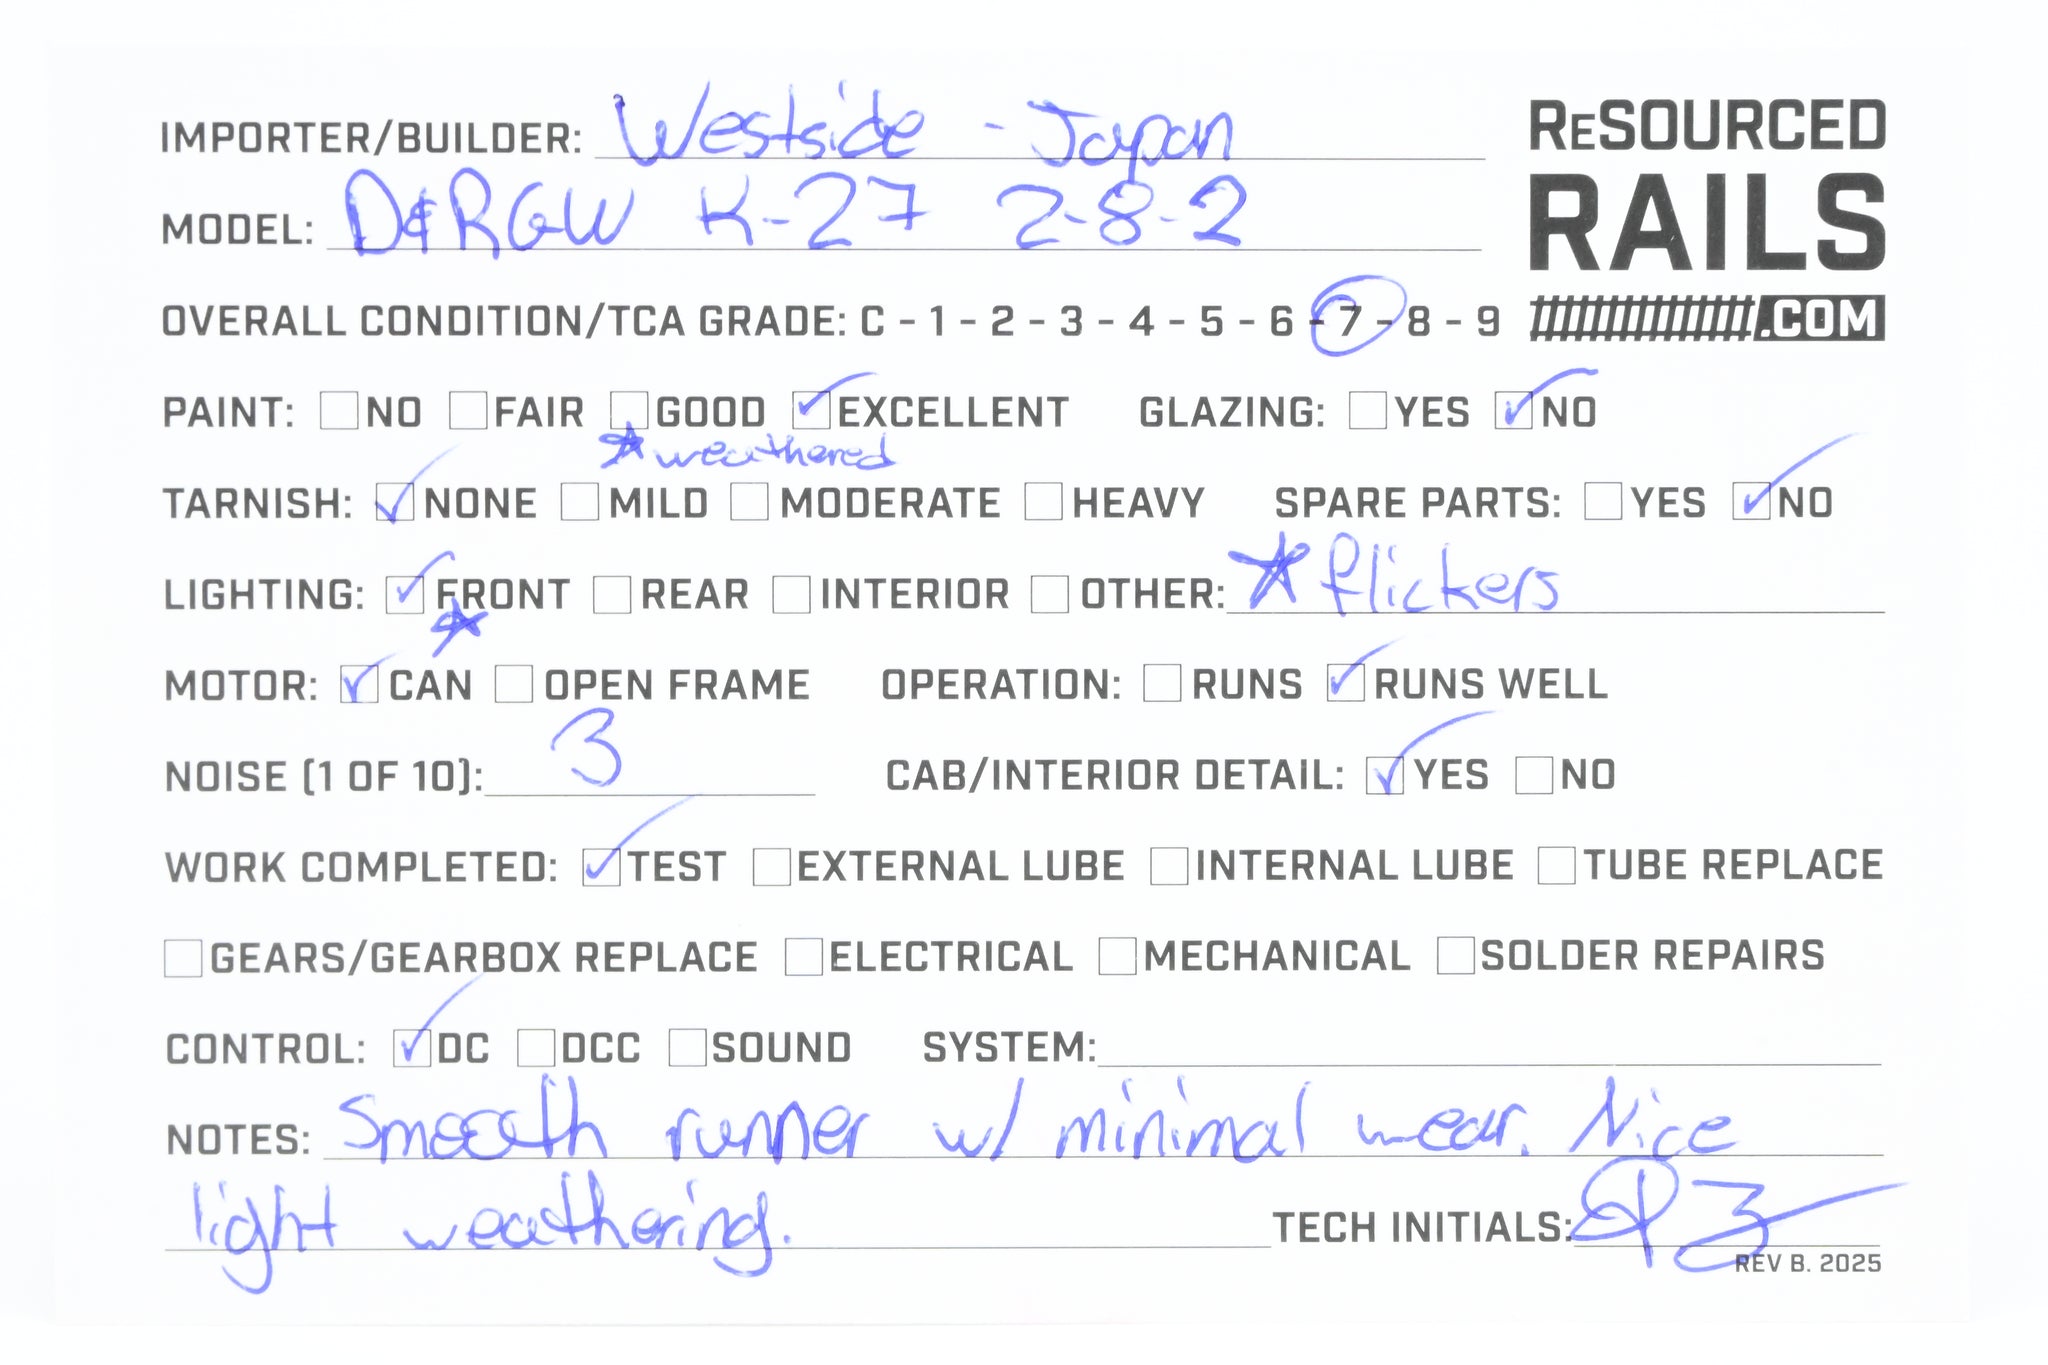 IMPORTER/BUILDER: Westside - Japan
ReSOURCED
RAILS
.COM
MODEL: D&RGW K-27 2-8-2
OVERALL CONDITION/TCA GRADE: C - 1 - 2 - 3 - 4 - 5 - 6 - 7 - 8 - 9
PAINT: ☐ NO ☐ FAIR ☐ GOOD ☑ EXCELLENT GLAZING: ☐ YES ☑ NO
★ weathered
TARNISH: ☑ NONE ☐ MILD ☐ MODERATE ☐ HEAVY SPARE PARTS: ☐ YES ☑ NO
LIGHTING: ☑ FRONT ★ ☐ REAR ☐ INTERIOR ☐ OTHER: ★ flickers
MOTOR: ☑ CAN ☐ OPEN FRAME OPERATION: ☐ RUNS ☑ RUNS WELL
NOISE (1 OF 10): 3 CAB/INTERIOR DETAIL: ☑ YES ☐ NO
WORK COMPLETED: ☑ TEST ☐ EXTERNAL LUBE ☐ INTERNAL LUBE ☐ TUBE REPLACE
☐ GEARS/GEARBOX REPLACE ☐ ELECTRICAL ☐ MECHANICAL ☐ SOLDER REPAIRS
CONTROL: ☑ DC ☐ DCC ☐ SOUND SYSTEM:
NOTES: Smooth runner w/ minimal wear. Nice
light weathering. TECH INITIALS:
REV B. 2025